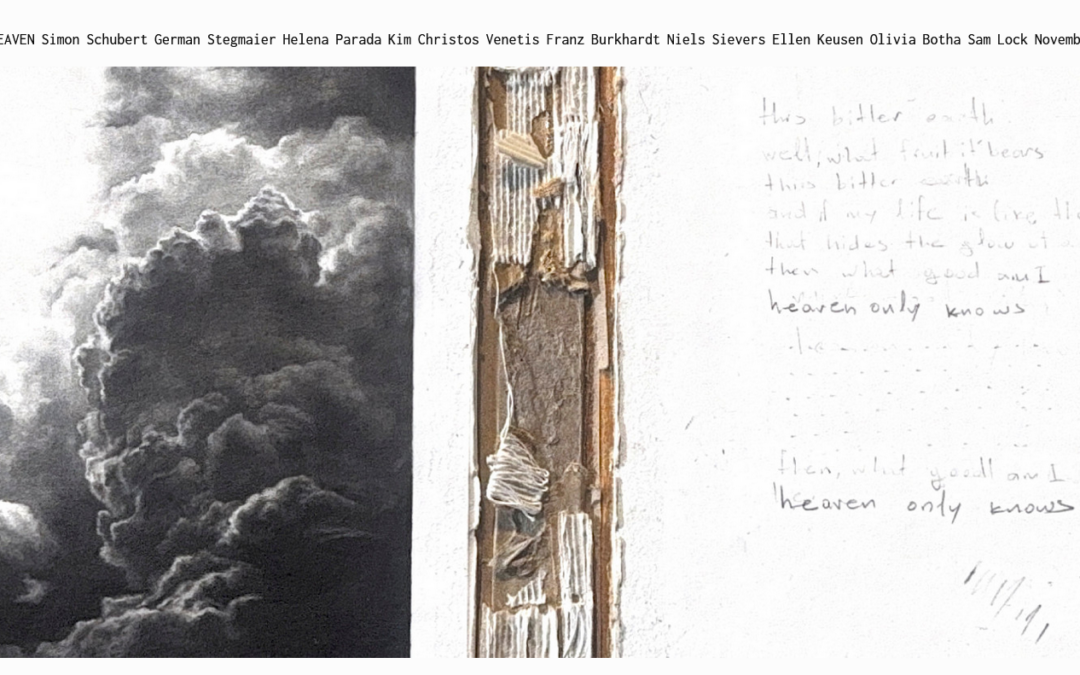 EAVEN Simon Schubert German Stegmaier Helena Parada Kim Christos Venetis Franz Burkhardt Niels Sievers Ellen Keusen Olivia Botha Sam Lock Novemb
this bitter earth
well, what fruit it bears
this bitter earth
and if my life is like th
that hides the glow of a
then what good am I
heaven only knows
then, what good am I
heaven only knows